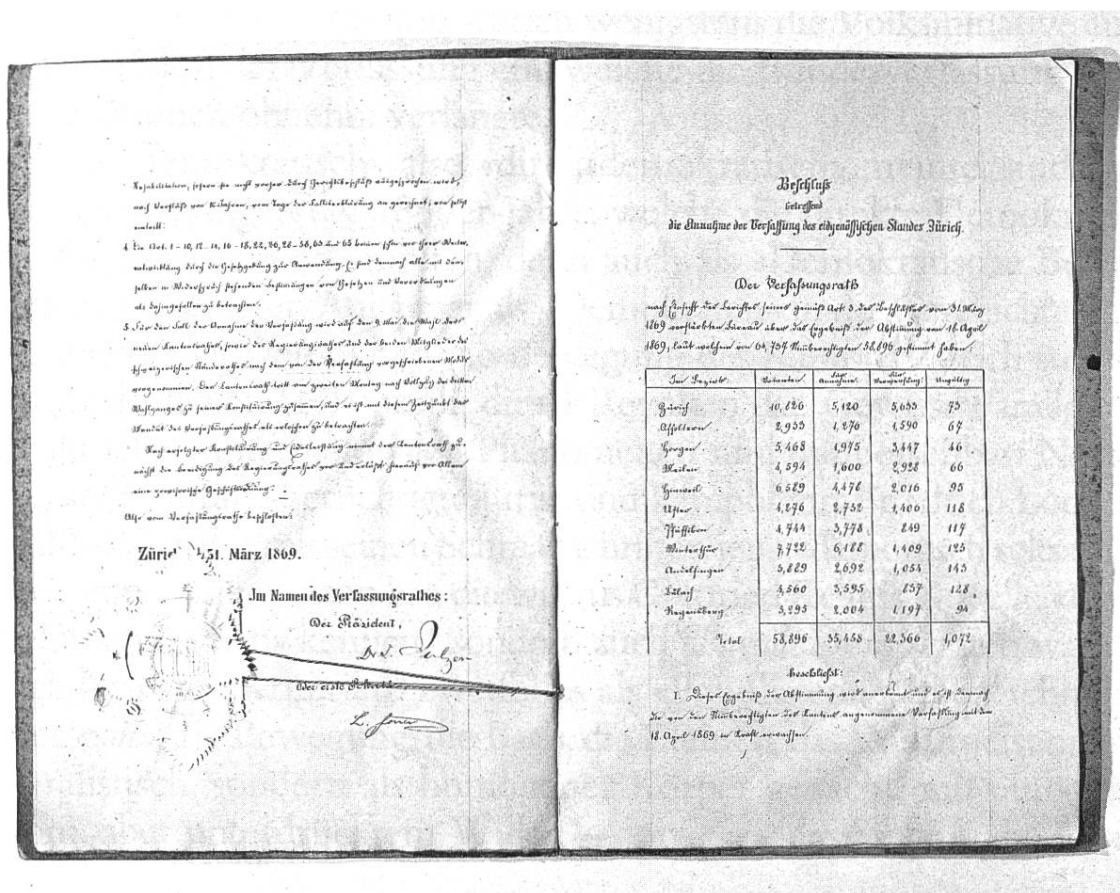 Rehabilitation, sofern sie nicht vorher durch Gerichtsbeschluß ausgesprochen wird,
nach Verfluß von 10 Jahren, vom Tage der Falliterklärung an gerechnet, von selbst
eintritt.
4. Die Art. 1-10, 12-14, 16-18, 22, 26, 28-56, 63 und 65 kommen schon vor ihrer Weiter-
entwicklung durch die Gesetzgebung zur Anwendung. Es sind demnach alle mit den-
selben in Widerspruch stehenden Bestimmungen von Gesetzen und Verordnungen
als dahingefallen zu betrachten.
5. Für den Fall der Annahme der Verfassung wird auf den 9. Mai die Wahl des
neuen Kantonsrathes, sowie des Regierungsrathes und der beiden Mitglieder des
schweizerischen Ständerathes nach dem von der Verfassung vorgeschriebenen Modus
vorgenommen. Der Kantonsrath tritt am zweiten Montag nach Vollzug des dritten
Wahlganges zu seiner Konstituirung zusammen, und es ist mit diesem Zeitpunkt das
Mandat des Verfassungsrathes als erloschen zu betrachten.
Nach erfolgter Konstituirung und Eidesleistung nimmt der Kantonsrath zu-
nächst die Beeidigung des Regierungsrathes vor und erläßt hierauf vor Allem
eine provisorische Geschäftsordnung.
Also vom Verfassungsrathe beschlossen:
Zürich 31. März 1869.
Im Namen des Verfassungsrathes:
Der Präsident,
Dr. J. Sulzer
Der erste Sekretär
L. Forrer
Beschluß
betreffend
die Annahme der Verfassung des eidgenössischen Standes Zürich.
Der Verfassungsrath
nach Einsicht des Berichtes seines gemäß Art. 3 des Beschlusses vom 31. März
1869 verstärkten Bureau über das Ergebniß der Abstimmung vom 18. April
1869, laut welchem von 64,737 Stimmberechtigten 58,896 gestimmt haben:
Im Bezirk: Votanten. Für Annahme. Für Verwerfung. Ungültig
Zürich 10,826 5,120 5,633 73
Affoltern 2,933 1,276 1,590 67
Horgen 5,468 1,975 3,447 46
Meilen 4,594 1,600 2,928 66
Hinweil 6,589 4,478 2,016 95
Uster 4,276 2,752 1,406 118
Pfäffikon 4,744 3,778 849 117
Winterthur 7,722 6,188 1,409 125
Andelfingen 3,889 2,692 1,054 143
Bülach 4,560 3,595 837 128
Regensberg 3,295 2,004 1,197 94
Total 58,896 35,458 22,366 1,072
beschließt:
I. Dieses Ergebniß der Abstimmung wird anerkannt und es ist demnach
die von den Stimmberechtigten des Kantons angenommene Verfassung mit dem
18. April 1869 in Kraft erwachsen.